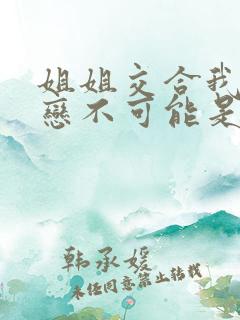 姐姐交合我
戀不可能是
韩承媛
未经同意禁止转载